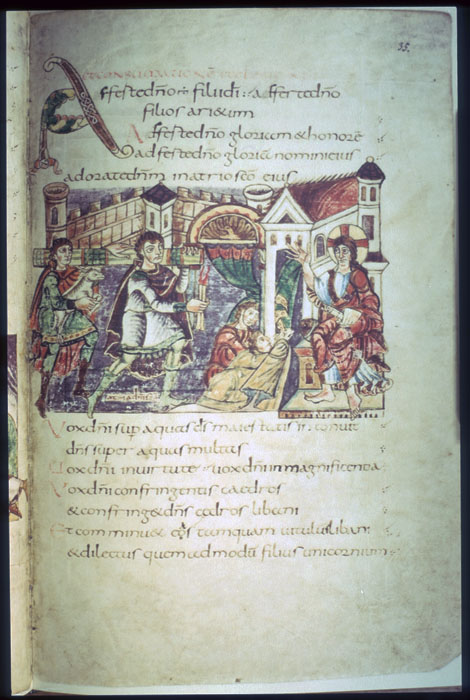 35.
Affeste dño filii di: affer te dño
filios arietum
Afferte dño gloriam & honorē
afferte dño gloriā nomini eius
adorate dñm in atrio scō eius
Vox dñi sup aquas ds maiestatis intonuit
dñs super aquas multas
Vox dñi in virtute vox dñi in magnificentia
Vox dñi confringentis caedros
& confring& dñs cedros libani
Et comminu& eos tamquam vitulū libani
& dilectus quemadmodū filius unicornium